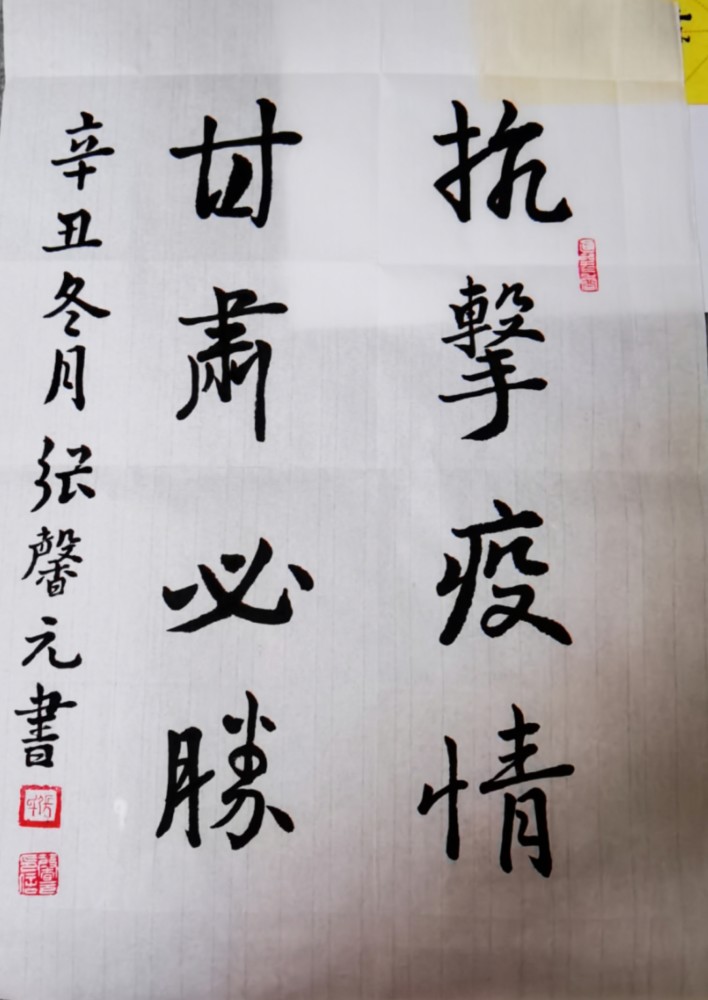 抗撃疫情
甘肅必勝
辛丑冬月張馨元書